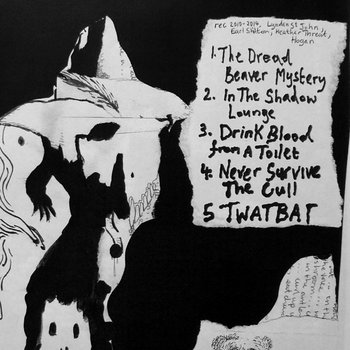 rec 2010-2014, Lyndon St John,
Earl Station, Heather Threat,
Hogan
1. The Dread
Beaver Mystery
2. In The Shadow
Lounge
3. Drink Blood
from A Toilet
4. Never Survive
The Cull
5 TWATBAT